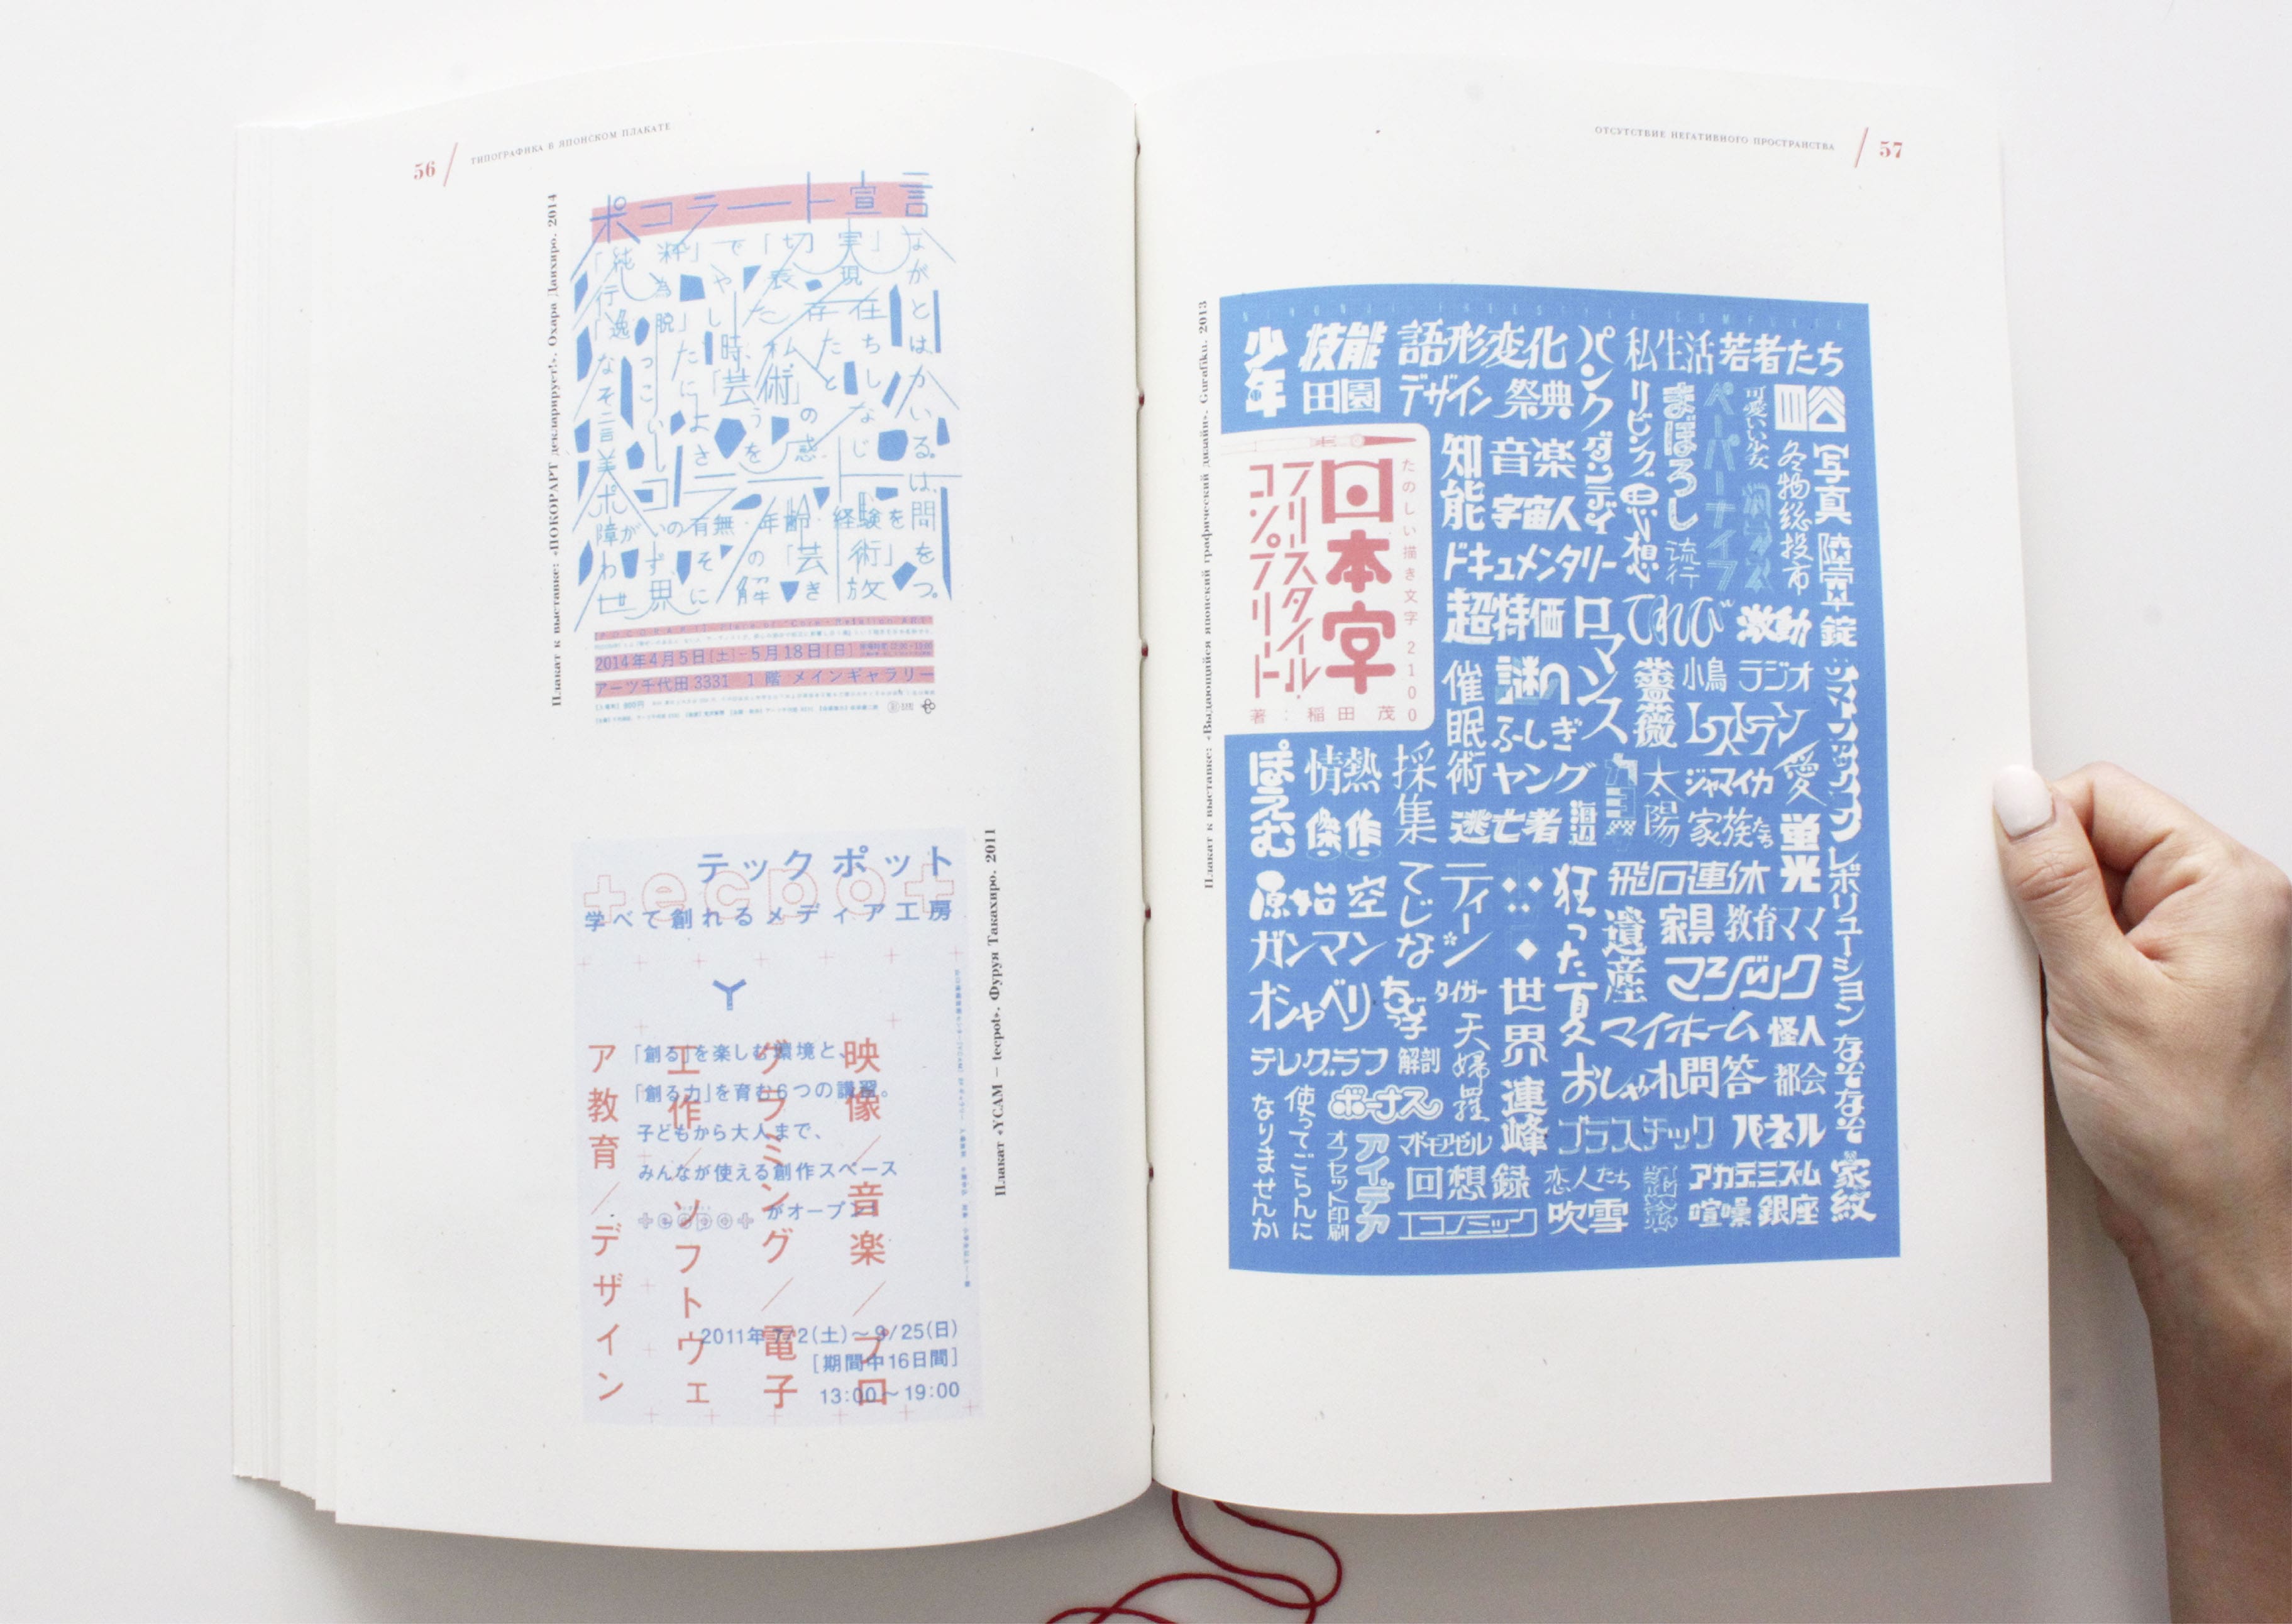 56 / ТИПОГРАФИКА В ЯПОНСКОМ ПЛАКАТЕ
Плакат к выставке: «ПОКОРАРТ декларирует!». Охара Даихиро. 2014
ポコラート宣言
「純粋」で「切実」な
行為や表現が
「逸脱」した存在と
なっった時、私たちは
そこに「芸術」としか
言いよううのないる
美しさを感じ
ポコラートは、
障がいの有無・年齢・経験を問
わず、その「芸術」を
世界に解き放つ。
2014年4月5日[土]–5月18日[日]
アーツ千代田 3331 1階 メインギャラリー
テックポット
tecpot
学べて創れるメディア工房
「創る」を楽しむ環境と、
「創る力」を育む6つの講習。
子どもから大人まで、
みんなが使える創作スペース
tecpotがオープン!
映像/音楽/プロ
グラミング/電子
工作/ソフトウェ
ア教育/デザイン
2011年7/2(土)~9/25(日)
[期間中16日間]
13:00~19:00
Плакат «YCAM — tecpot». Фуруя Такахиро. 2011
ОТСУТСТВИЕ НЕГАТИВНОГО ПРОСТРАНСТВА / 57
Плакат к выставке: «Выдающийся японский графический дизайн». Gurafiku. 2013
少年
技能
田園
語形変化
デザイン
祭典
パンクダンディ
私生活
若者たち
リビング
まぼろし
ペーパーナイフ
可愛いい少女
四谷
写真
冬物総投市
知能
音楽
宇宙人
思想
流行
陸軍
ドキュメンタリー
たのしい描き文字 2100
日本字
フリースタイル
コンプリート
著:稲田茂
超特価
ロマンス
てれび
激動
錠
催眠術
謎の
ふしぎ
薔薇
小鳥
ラジオ
レストラン
ぽえむ
情熱
採集
ヤング
太陽
ジャマイカ
愛
傑作
逃亡者
海辺
家族たち
蛍光
原始
空
てじな
ティーン
狂った夏
飛石連休
レボリューション
ガンマン
遺産
家具
教育ママ
オシャベリ
ちびっ子
タイガー
世界連峰
マジック
天婦羅
マイホーム
怪人
なぞなぞ
テレグラフ
解剖
おしゃれ問答
都会
使ってごらんに
なりませんか
ボーナス
プラスチック
パネル
オフセット印刷
アイデア
マドモアゼル
回想録
恋人たち
アカデミズム
家紋
エコノミック
吹雪
喧噪
銀座